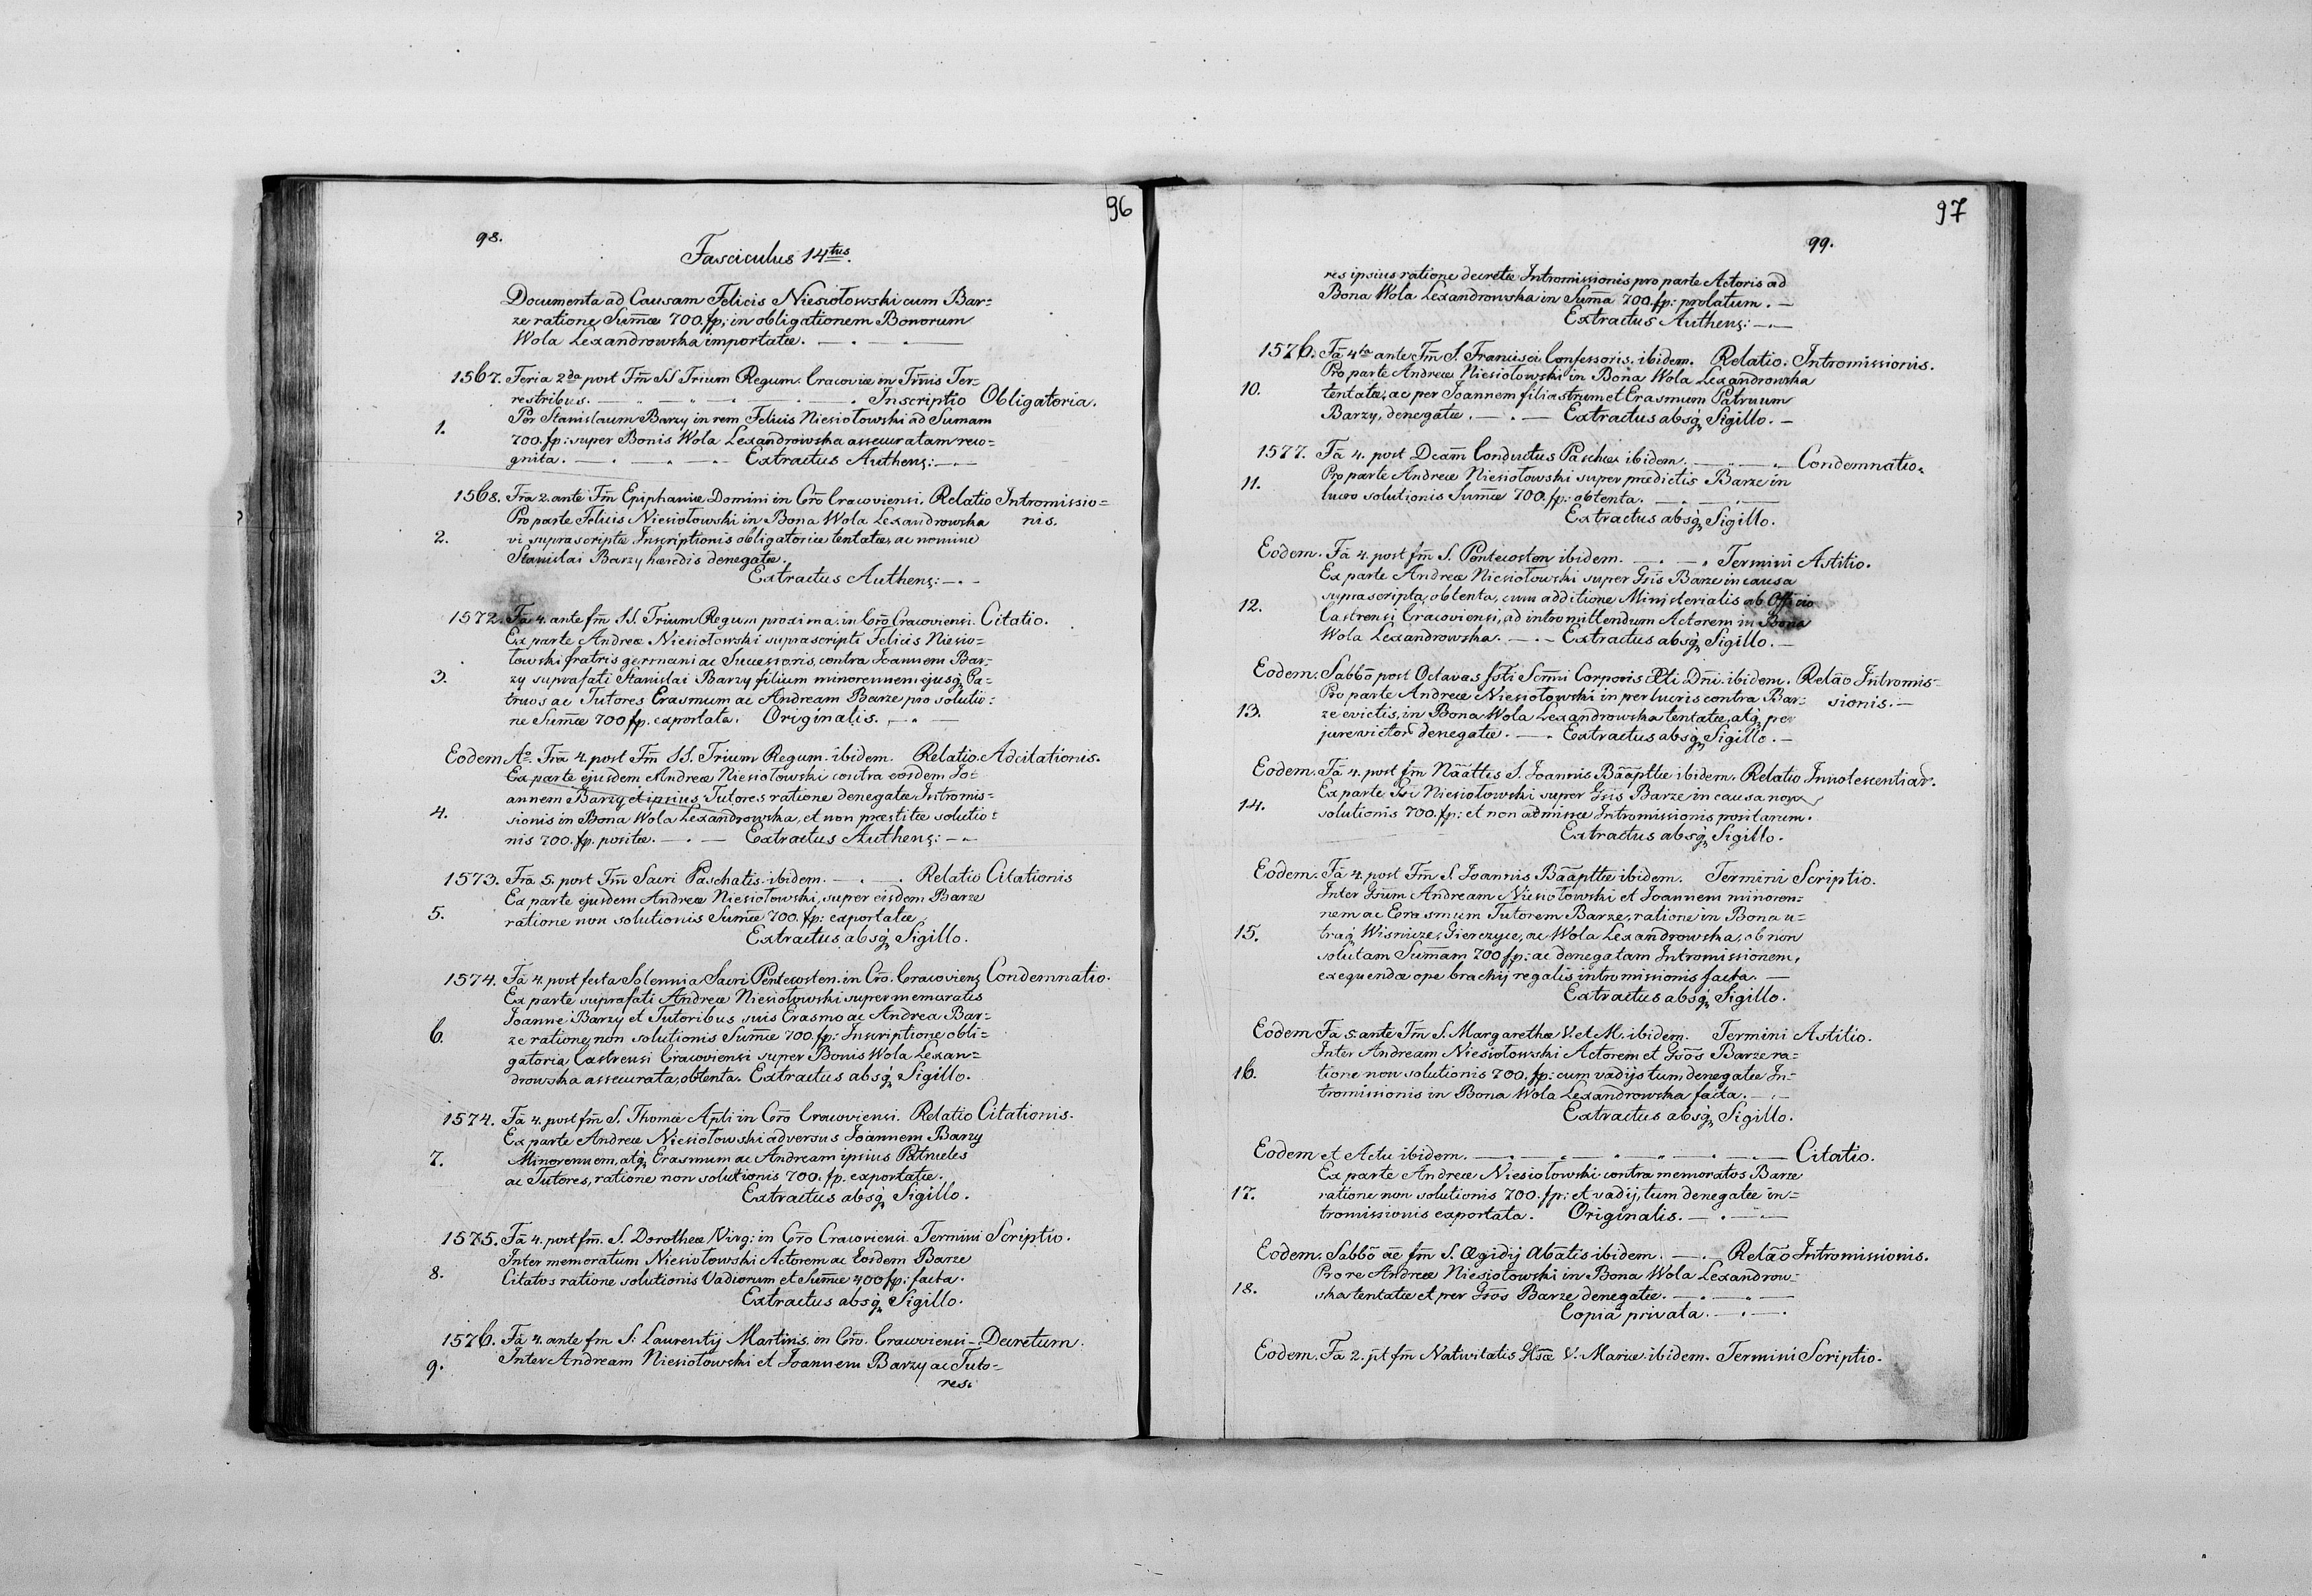 96
98.
Fasciculus 14tus.
Documenta ad Causam Felicis Niesiołowski cum Bar=
ze ratione Sum̃æ 700. fp: in obligationem Bonorum
Wola Lexandrowska importatæ. — . —
1567. Feria 2da post Fm̃ SS Trium Regum. Cracoviæ in Trm̃is Ter=
restribus. — Inscriptio Obligatoria.
1. Per Stanislaum Barzy in rem Felicis Niesiołowski ad Sumam
700. fp: super Bonis Wola Lexandrowska assecuratam reco=
gnita. — . — Extractus Authens: — . —
1568. Fra 2. ante Fm̃ Epiphaniæ Domini in Crõ Cracoviensi. Relatio Intromissio=
Pro parte Felicis Niesiołowski in Bona Wola Lexandrowska nis.
2. vi suprascriptæ Inscriptionis obligatoriæ tentatæ, ac nomine
Stanislai Barzy hæredis denegatæ.
Extractus Authens: — . —
1572. Fã 4. ante fm̃ SS. Trium Regum proxima. in Crõ Cracoviensi. Citatio.
Ex parte Andreæ Niesiołowski suprascripti Felicis Niesio=
łowski fratris germani ac Successoris, contra Joannem Bar=
3. zy suprafati Stanislai Barzy filium minorennem ejusq̃ Pa=
truos ac Tutores Erasmum ac Andream Barze pro solutio=
ne Sum̃æ 700 fp. exportata. Originalis. — . —
Eodem Ao. Frã 4. post Fm̃ SS. Trium Regum. ibidem. Relatio Adcitationis.
Ex parte ejusdem Andreæ Niesiołowski contra eosdem Jo=
annem Barzy et ipsius Tutores ratione denegatæ Intromis=
4. sionis in Bona Wola Lexandrowska, et non præstitæ solutio=
nis 700. fp. positæ. — . — Extractus Authens: — . —
1573. Frã 5. post Fm̃ Sacri Paschatis. ibidem. — . — . Relatio Citationis
Ex parte ejusdem Andreæ Niesiołowski, super eisdem Barze
5. ratione non solutionis Sum̃æ 700. fp: exportatæ.
Extractus absq̃ Sigillo.
1574. Fã 4. post festa Solennia Sacri Pentecosten. in Crõ. Cracoviens Condemnatio.
Ex parte suprafati Andreæ Niesiołowski super memoratis
Joanne Barzy et Tutoribus suis Erasmo ac Andrea Bar=
6. ze ratione non solutionis Sum̃æ 700. fp: Inscriptione obli=
gatoria Castrensi Cracoviensi super Bonis Wola Lexan=
drowska assecurata, obtenta. Extractus absq̃ Sigillo.
1574. Fã 4. post fm̃ S. Thomæ Apl̃i in Crõ Cracoviensi. Relatio Citationis.
Ex parte Andreæ Niesiołowski adversus Joannem Barzy
7. Minorennem, atq̃ Erasmum ac Andream ipsius Patrueles
ac Tutores, ratione non solutionis 700. fp. exportatæ.
Extractus absq̃ Sigillo.
1575. Fã 4. post fm̃. S. Dorotheæ Virg: in Crõ Cracoviensi. Termini Scriptio.
Inter memoratum Niesiołowski Actorem ac Eosdem Barze
8. Citatos ratione solutionis Vadiorum et Sum̃æ 400 fp: facta.
Extractus absq̃ Sigillo.
1576. Fã 4. ante fm S: Laurentij Martiris. in Crõ. Cracoviensi — Decretum.
9. Inter Andream Niesiołowski et Joannem Barzy ac Tuto=
res.
97
99.
res ipsius ratione decretæ Intromissionis pro parte Actoris ad
Bona Wola Lexandrowska in Sum̃a 700. fp: prolatum. —
Extractus Authens: — . —
1576. Fã 4ta ante Fm̃ S. Francisci Confessoris. ibidem. Relatio. Intromissionis.
Pro parte Andreæ Niesiołowski in Bona Wola Lexandrowska
10. tentatæ, ac per Joannem filiastrum et Erasmum Patruum
Barzy, denegatæ. — . — Extractus absq̃ Sigillo. —
1577. Fã 4. post Dcam̃ Conductus Paschæ ibidem. — Condemnatio.
Pro parte Andreæ Niesiołowski super prædictis Barze in
11. lucro solutionis Sum̃æ 700. fp: obtenta. — . —
Extractus absq̃ Sigillo.
Eodem. Fã 4. post fm̃ S. Pentecosten ibidem. — . — . Termini Astitio.
Ex parte Andreæ Niesiołowski super Gsis Barze in causa
12. suprascripta, obtenta, cum additione Ministerialis ab Officio
Castrensi Cracoviensi, ad intromittendum Actorem in Bona
Wola Lexandrowska. — . — Extractus absq̃ Sigillo. —
Eodem. Sabbõ post Octavas fsti Scm̃i Corporis Xti Dñi. ibidem. Relão Intromis=
Pro parte Andreæ Niesiołowski in per lucris contra Bar= sionis. —
13. ze evictis, in Bona Wola Lexandrowska tentatæ, atq̃ per
jurevictos denegatæ. — . Extractus absq̃ Sigillo. —
Eodem. Fã 4. post fm̃ Nããttis S. Joannis Bããpttæ ibidem. Relatio Innotescentiar.
Ex parte Gsi Niesiołowski super Gsis Barze in causa non
14. solutionis 700. fp: et non admissæ Intromissionis positarum.
Extractus absq̃ Sigillo.
Eodem. Fã 4. post Fm̃ S Joannis Bããpttæ ibidem. Termini Scriptio.
Inter Gsum Andream Niesiołowski et Joannem minoren=
nem ac Erasmum Tutorem Barze, ratione in Bona u=
15. traq̃ Wisnicze, Gierczyce, ac Wola Lexandrowska, ob non
solutam Sumam 700 fp: ac denegatam Intromissionem,
exequendæ ope brachij regalis intromissionis facta. —
Extractus absq̃ Sigillo.
Eodem Fã 5. ante Fm̃ S. Margarethæ V. et M. ibidem. Termini Astitio.
Inter Andream Niesiołowski Actorem et Gsõs Barze ra=
16. tione non solutionis 700. fp: cum vadijs tum denegatæ In=
tromissionis in Bona Wola Lexandrowska facta. — . —
Extractus absq̃ Sigillo.
Eodem et Actu ibidem. — . — . — . — Citatio.
Ex parte Andreæ Niesiołowski contra memoratos Barze
17. ratione non solutionis 700. fp: et vadij, tum denegatæ in=
tromissionis exportata. Originalis. — . —
Eodem. Sabbõ ãe fm̃ S. Ægidij Abatis ibidem. — . — Relão Intromissionis.
Pro re Andreæ Niesiołowski in Bona Wola Lexandrow=
18. ska tentatæ et per Gsõs Barze denegatæ. — . —
Copia privata. — . — .
Eodem. Fã 2. pt̃ fm̃ Nativitatis Glsæ V. Mariæ ibidem. Termini Scriptio.